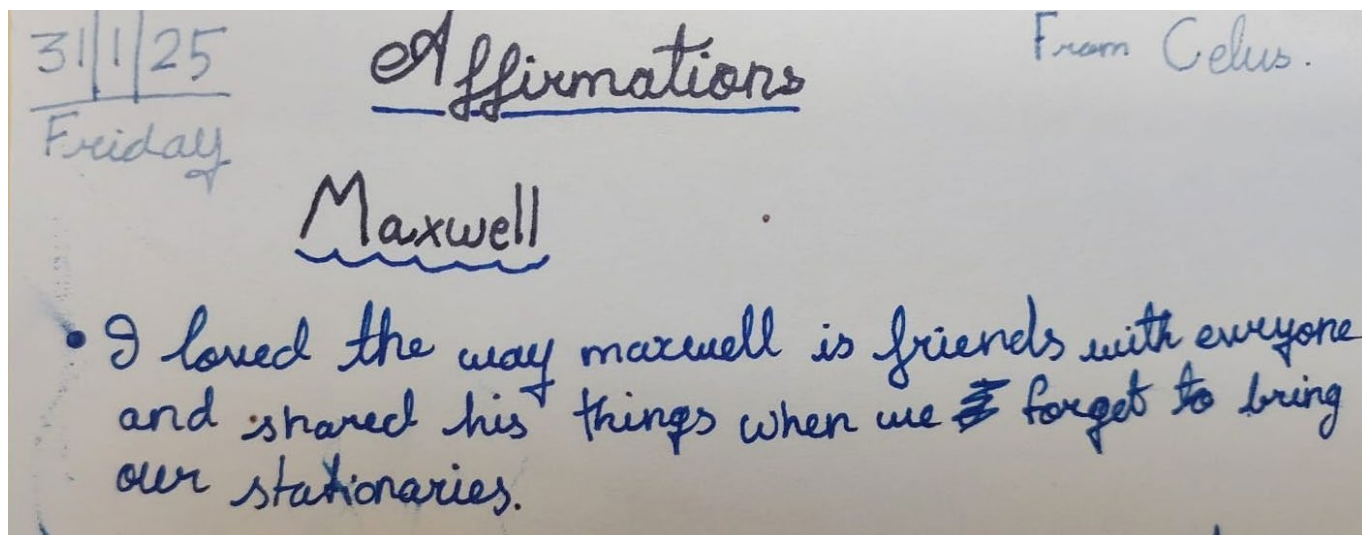 31/1/25
Affirmations
From Celus.
Friday
Maxwell
• I loved the way maxwell is friends with everyone
and shared his things when we forget to bring
our stationaries.